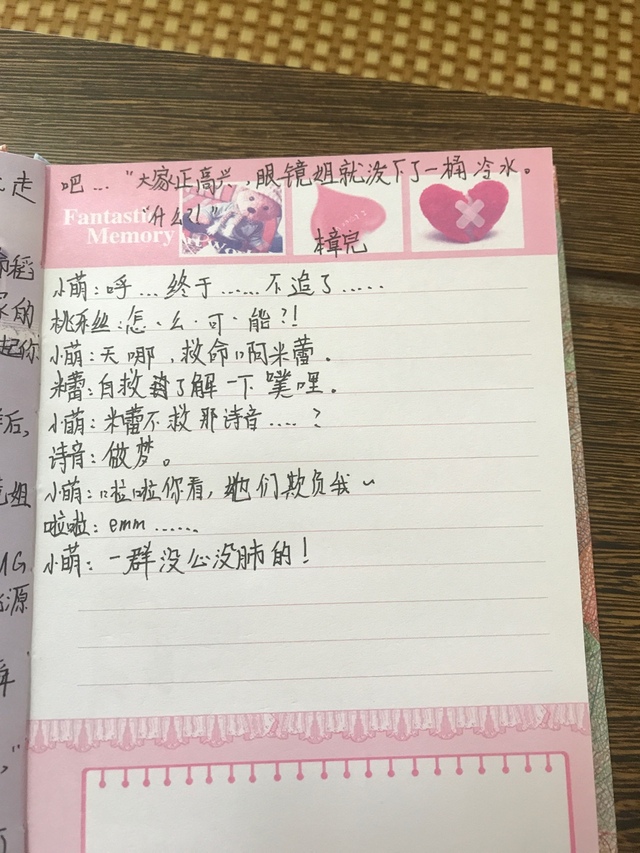 吧…"大家正高兴,眼镜姐就泼下了一桶冷水。
"什么?!"
Fantastic
Memory
章完
小萌:呼…终于……不追了……
桃乐丝:怎·么·可·能?!
小萌:天哪,救命啊米蕾。
米蕾:自救了解一下噗哩。
小萌:米蕾不救那诗音……?
诗音:做梦。
小萌:啦啦你看,她们欺负我~
啦啦:emm……
小萌:一群没心没肺的!
走
稻
的
起你
后,
姐
MG
源
"